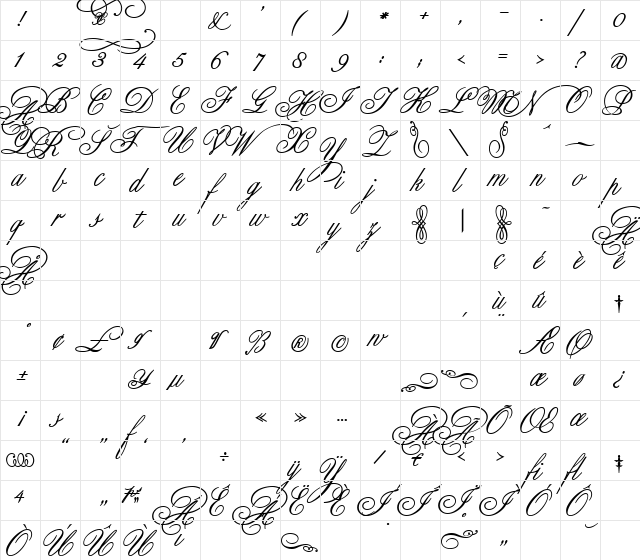 ! & ' ( ) * + , – . / 0
1 2 3 4 5 6 7 8 9 : ; < = > ? @
A B C D E F G H I J K L M N O P
Q R S T U V W X Y Z \
a b c d e f g h i j k l m n o p
q r s t u v w x y z | ~ Ä
Å ç é è ê
ù û † ¨
° ¢ £ B ® © Æ Ø
± µ æ ø ¿
¡ « » … À Ã Õ Œ œ
“ ” ‘ ’ ÷ ÿ Ÿ / < > fi fl ‡
„ Â Ê Á Ë È Í Î Ï Ì Ó Ô
Ò Ú Û Ù ı